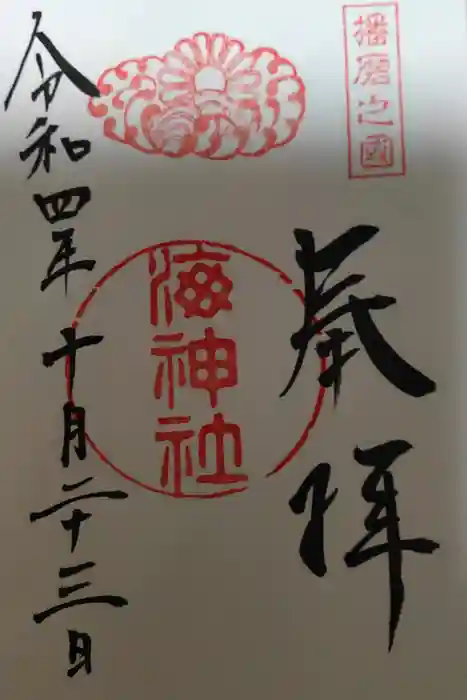 播磨之國
奉拝
海神社
令和四年十月二十三日